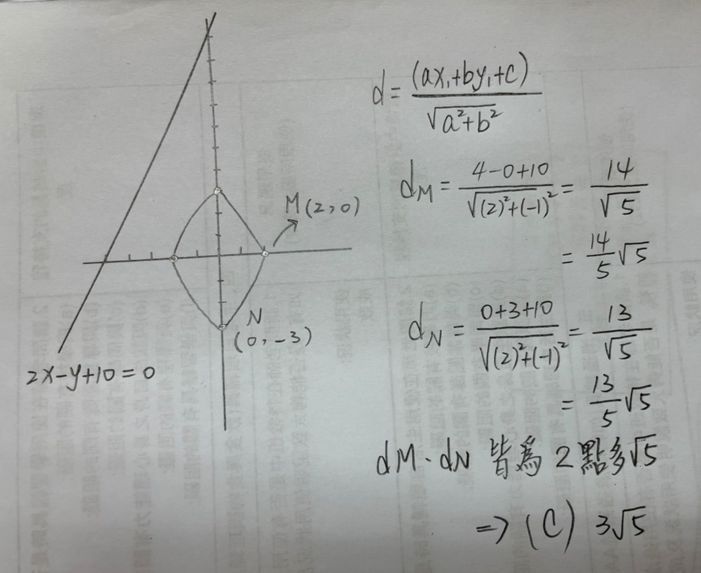 M(2,0)
N
(0,-3)
2x-y+10=0
d = (ax₁+by₁+c) / √(a²+b²)
dM = (4-0+10) / √((2)²+(-1)²) = 14/√5
= 14/5 √5
dN = (0+3+10) / √((2)²+(-1)²) = 13/√5
= 13/5 √5
dM、dN 皆為 2點多√5
=> (C) 3√5